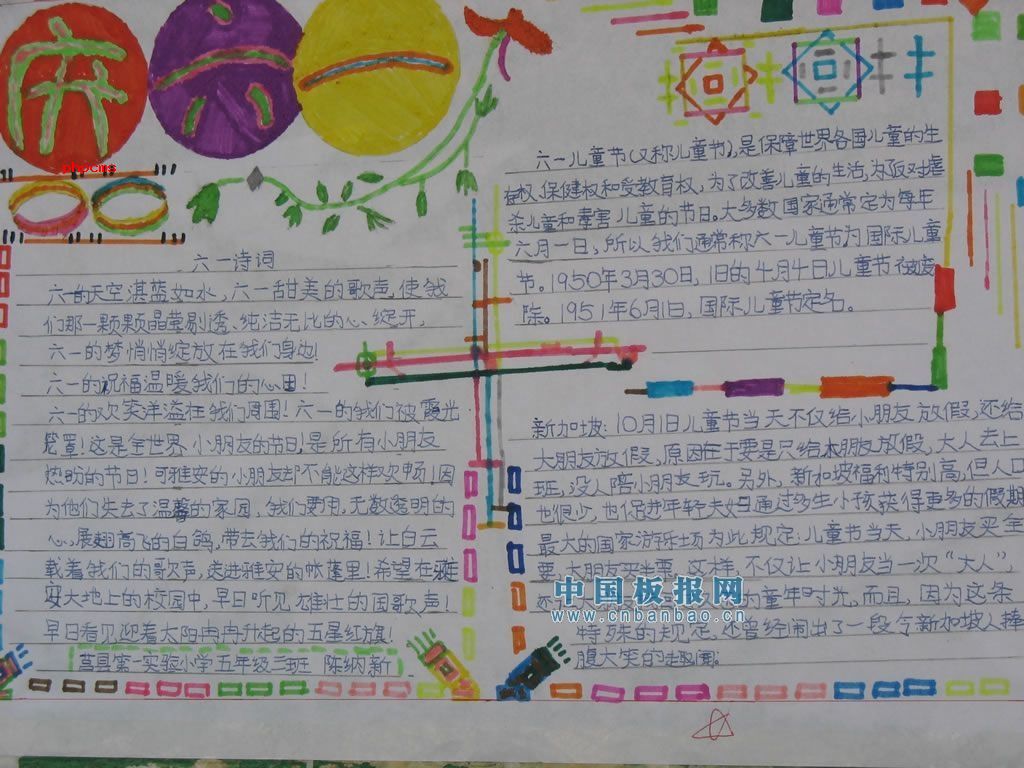 庆六一
phpcms
六一诗词
六一的天空湛蓝如水,六一甜美的歌声,使我
们那一颗颗晶莹剔透、纯洁无比的心绽开,
六一的梦悄悄绽放在我们身边!
六一的祝福温暖我们的心田!
六一的欢笑洋溢在我们周围!六一的我们被霞光
笼罩!这是全世界小朋友的节日!是所有小朋友
热盼的节日!可雅安的小朋友却不能这样欢畅!因
为他们失去了温馨的家园,我们要用无数透明的
心,展翅高飞的白鸽,带去我们的祝福!让白云
载着我们的歌声,走进雅安的帐蓬里!希望在雅
安大地上的校园中,早日听见雄壮的国歌声!
早日看见迎着太阳冉冉升起的五星红旗!
莒县第一实验小学五年级三班 陈纳新
六一儿童节(又称儿童节),是保障世界各国儿童的生
存权、保健权和受教育权,为了改善儿童的生活,为反对虐
杀儿童和毒害儿童的节日。大多数国家通常定为每年
六月一日,所以我们通常称六一儿童节为国际儿童
节。1950年3月30日,旧的4月4日儿童节被废
除。1951年6月1日,国际儿童节定名。
新加坡:10月1日儿童节当天不仅给小朋友放假,还给
大朋友放假,原因在于要是只给小朋友放假,大人去上
班,没人陪小朋友玩。另外,新加坡福利特别高,但人口
也很少,也促进年轻夫妇通过多生小孩获得更多的假期
最大的国家游乐场为此规定:儿童节当天,小朋友买全
票,大朋友买半票,这样,不仅让小朋友当一次“大人”,
的童年时光,而且,因为这条
特殊的规定,还曾经闹出了一段令新加坡人捧
腹大笑的趣闻。
中国板报网
www.cnbanbao.cn